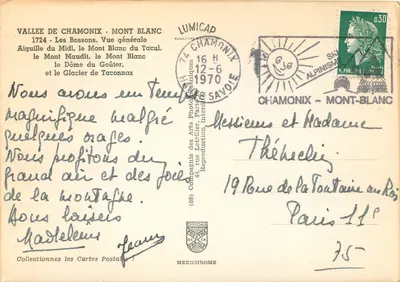 VALLÉE DE CHAMONIX - MONT BLANC
1724 - Les Bossons. Vue générale
Aiguille du Midi, le Mont Blanc du Tacul,
le Mont Maudit, le Mont Blanc
le Dôme du Goûter,
et le Glacier de Taconnaz
Nous avons un temps
magnifique malgré
quelques orages.
Nous profitons du
grand air et des joies
de la montagne.
Bons baisers
Madeleine
Jeanne
Collectionnez les Cartes Postales
LUMICAP
(68) Compagnie des Arts Photomécaniques
Reproduction interdite
MEXICHROME
74 CHAMONIX
16 H
12-6
1970
Hte SAVOIE
SKI
ALPINISME
CHAMONIX - MONT-BLANC
0,30
Messieurs et Madame
19 Rue de la Fontaine au Roi
Paris 11e
75